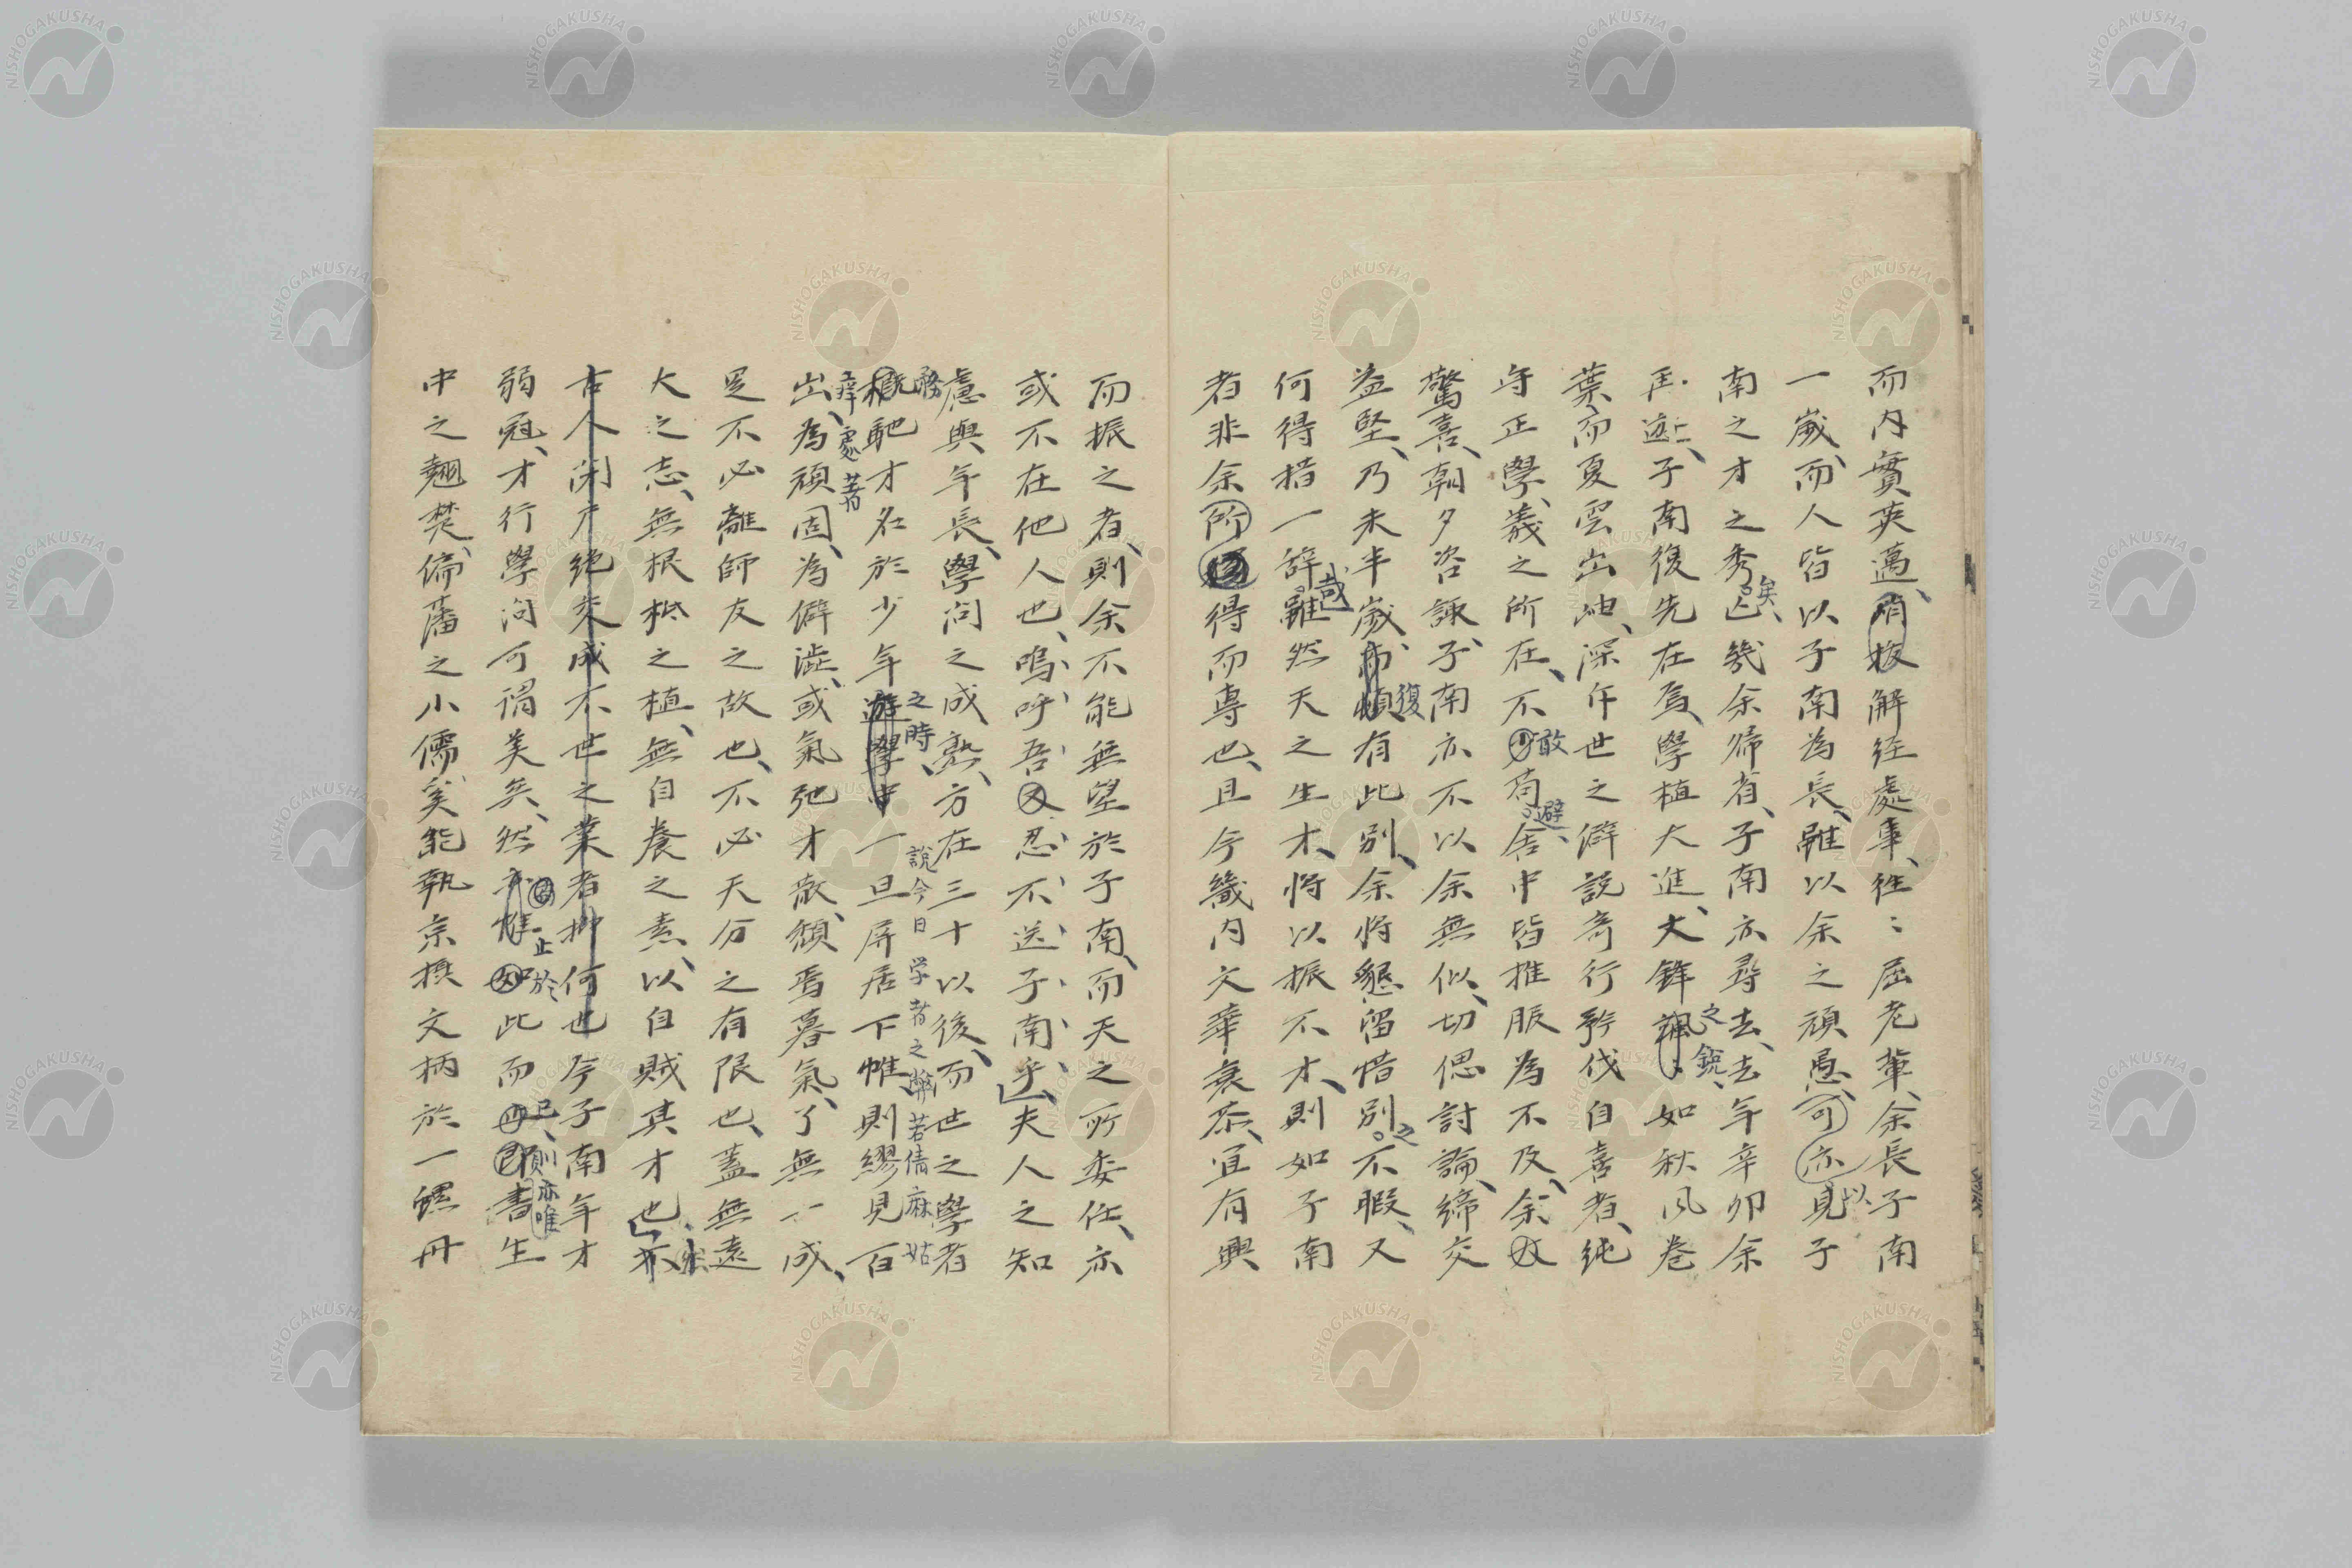 而内實英邁、俏拔解経處事、往〻屈老輩、余長子南
一歲、而人皆以子南為長、雖以余之頑愚、可亦以見子
南之才之秀矣、亡幾余帰省、子南亦尋去、去年辛卯余
再遊、子南復先在焉、學植大進、文鋒之鋭、颯〻如秋風卷
葉、而夏雲出岫、深斥世之僻説奇行矜伐自喜者、純
守正學、義之所在、不敢苟避、舍中皆推服為不及、余又
驚喜、朝夕咨諏、子南亦不以余無似、切偲討論、締交
益堅、乃未半歲、而復有此別、余將懇留惜別之不暇、又
何得措一辞或雖然天之生才、將以振不才、則如子南
者非余所得而專也、且今畿内文華衰苶、宜有興
而振之者、則余不能無望於子南、而天之所委任、亦
或不在他人也、嗚呼吾又忍不送子南乎、夫人之知
慮與年長、學問之成熟、方在三十以後、而世之學者
務概馳才名於少年之時遊學中一旦屏居下帷、則繆見百
説今日学者之弊若倩麻姑
出、為頑固、為僻澁、或氣弛才散、頽焉暮氣、了無一成、
痒處著
是不必離師友之故也、不必天分之有限也、蓋無遠
大之志、無根柢之植、無自養之素、以自賊其才也、亦
古人閉戸絶交成不世之業者抑何也今子南年才
弱冠、才行學問可謂美矣、然亦惟止於此而已、則亦唯書生
中之翹楚、偏藩之小儒矣、能執宗撰文柄於一蠅丹